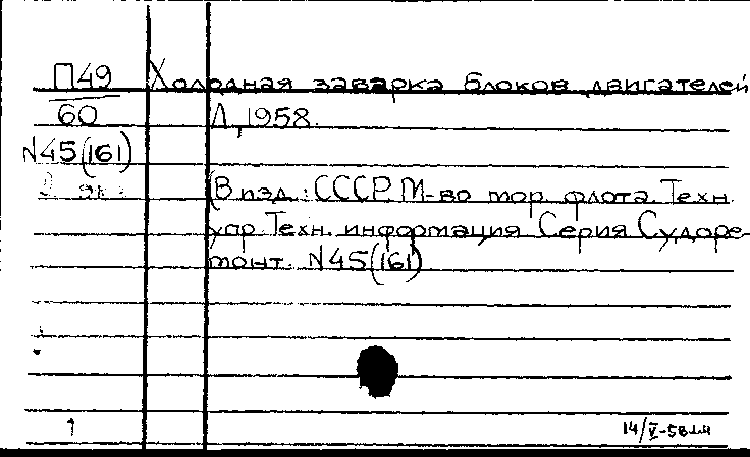 П49 Холодная заварка блоков двигателей
60 Л, 1958.
N45(161)
2 экз
(В изд.: СССР. М-во мор. флота. Техн.
упр. Техн. информация Серия Судоре-
монт. N45(161)
1 14/V-58